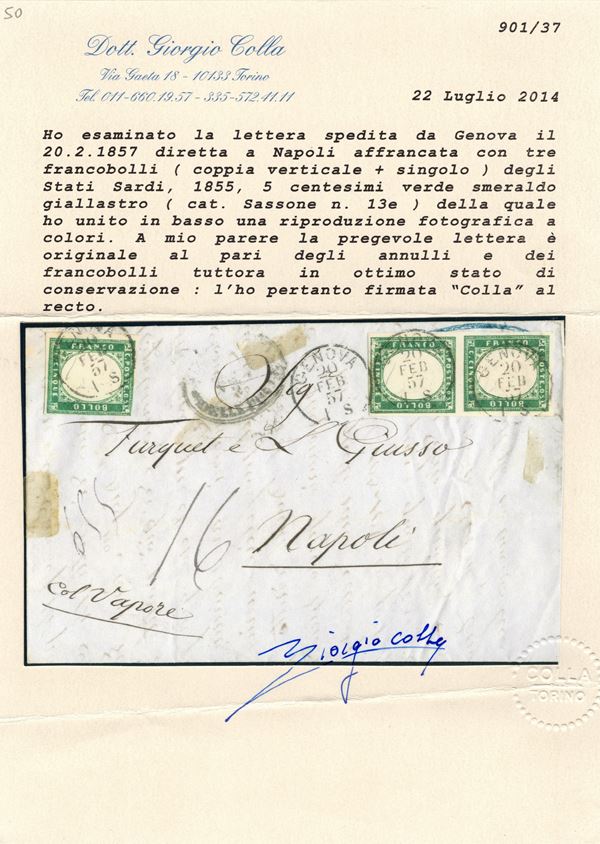 50
901/37
Dott. Giorgio Colla
Via Gaeta 18 - 10133 Torino
Tel. 011-660.19.57 - 335-572.41.11
22 Luglio 2014
Ho esaminato la lettera spedita da Genova il
20.2.1857 diretta a Napoli affrancata con tre
francobolli ( coppia verticale + singolo ) degli
Stati Sardi, 1855, 5 centesimi verde smeraldo
giallastro ( cat. Sassone n. 13e ) della quale
ho unito in basso una riproduzione fotografica a
colori. A mio parere la pregevole lettera è
originale al pari degli annulli e dei
francobolli tuttora in ottimo stato di
conservazione : l'ho pertanto firmata "Colla" al
recto.
GENOVA
FEB
57
1 S
FRANCO
BOLLO
GENOVA
20
FEB
57
1 S
FRANCO
BOLLO
20
FEB
57
1 S
FRANCO
BOLLO
GENOVA
20
FEB
57
Sig
Furquet e L Giusso
16
Napoli
Col Vapore
Giorgio Colla
COLLA
TORINO